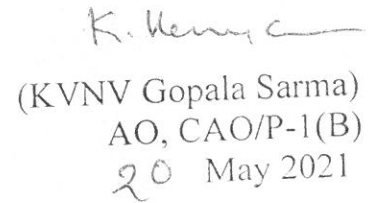 (KVNV Gopala Sarma)
AO, CAO/P-1(B)
20 May 2021